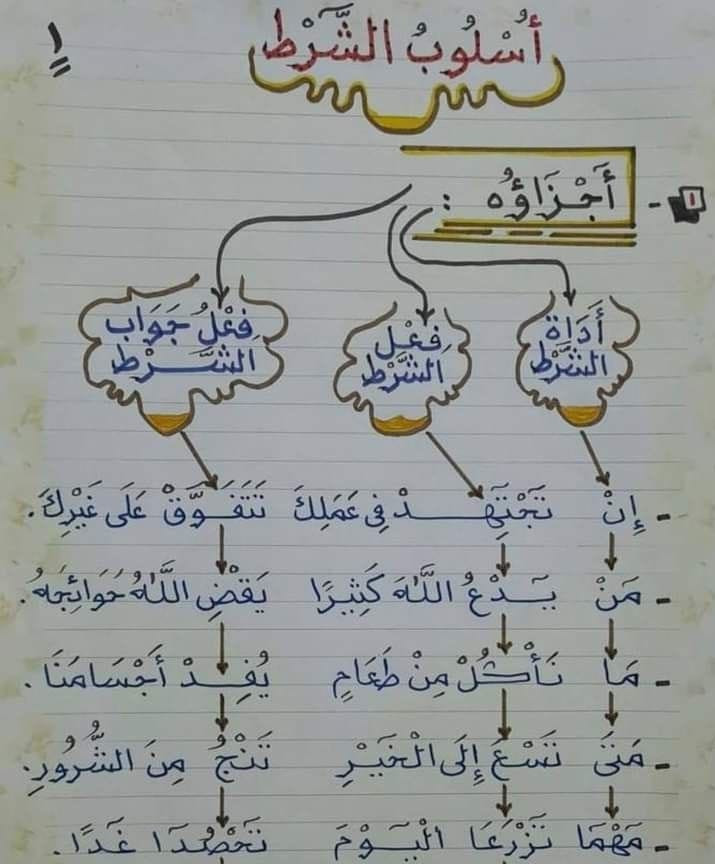 ١
أُسْلُوبُ الشَّرْط
١ - أَجْزَاؤُه :
أَدَاة الشَّرْط
فِعْل الشَّرْط
فِعْلُ جَوَاب الشَّرْط
- إِنْ تَجْتَهِدْ فِي عَمَلِكَ تَتَفَوَّقْ عَلَى غَيْرِكَ.
- مَنْ يَدْعُ اللَّهَ كَثِيرًا يَقْضِ اللَّهُ حَوَائِجَهُ.
- مَا نَأْكُلْ مِنْ طَعَامٍ يُفِدْ أَجْسَامَنَا.
- مَتَى تَسْعَ إِلَى الْخَيْرِ تَنْجُ مِنَ الشُّرُورِ.
- مَهْمَا تَزْرَعَا الْيَوْمَ تَحْصُدَا غَدًا.